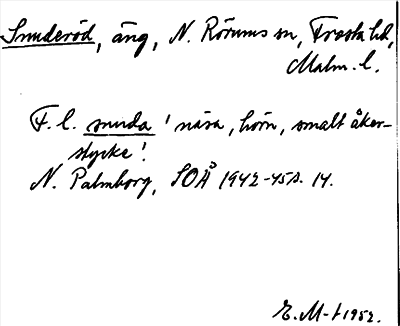 Snuderöd, äng, N. Rörums sn, Frosta hd,
Malm. l.
F. l. snuda 'näsa, hörn, smalt åker-
stycke'.
N. Palmborg, SOÅ 1942-45 s. 14.
E. M-t 1952.